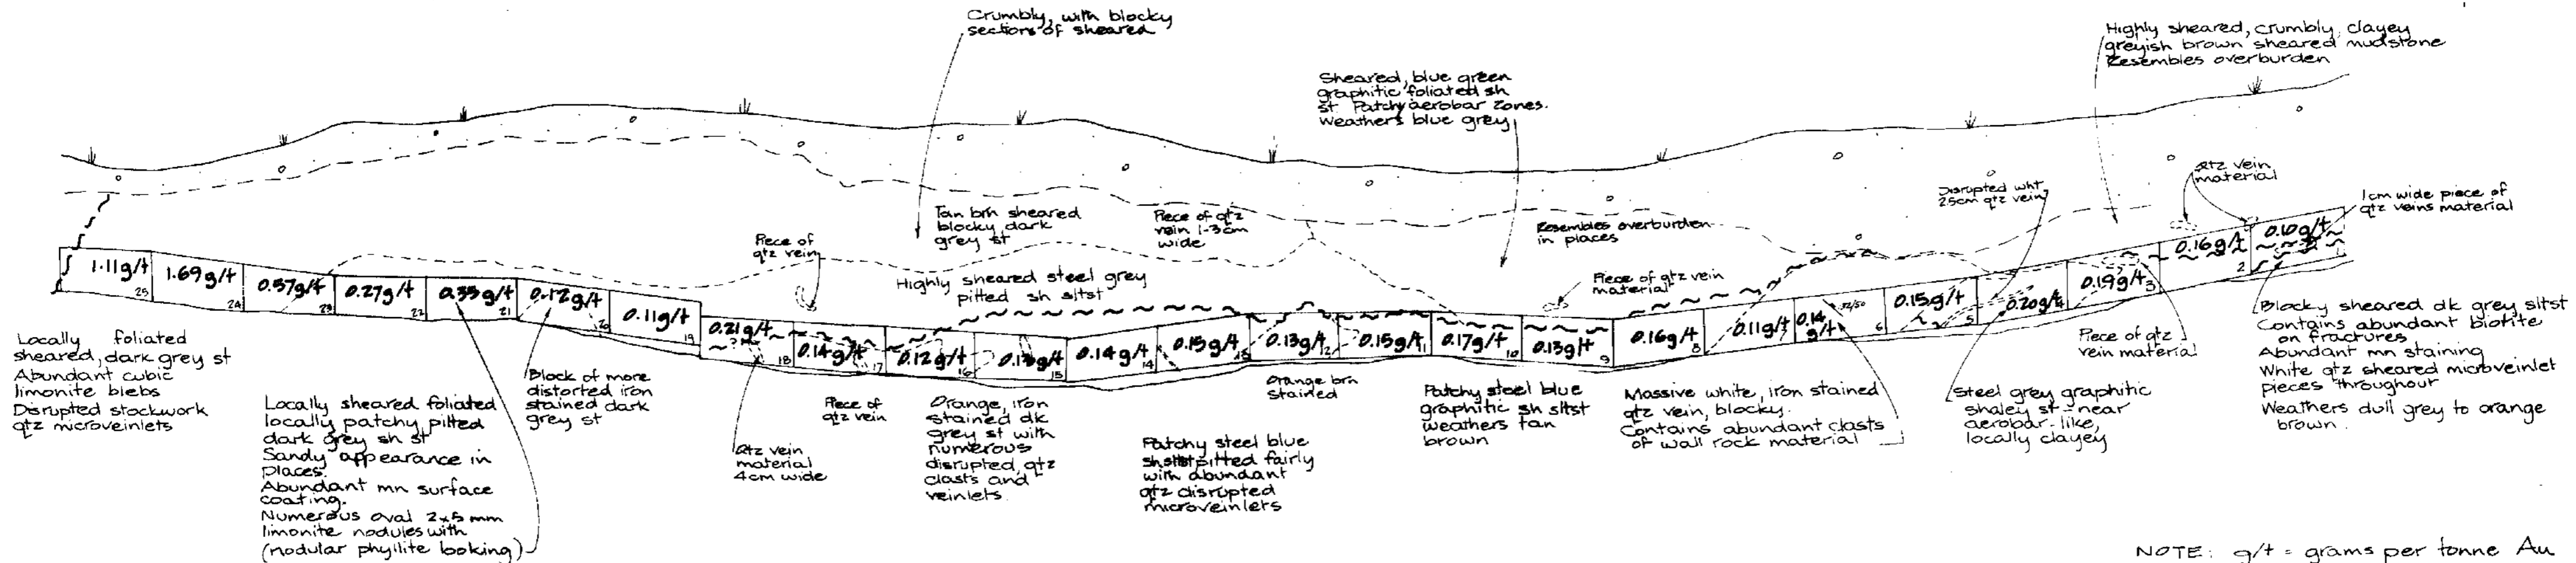 Crumbly, with blocky
sections of sheared
Sheared, blue green
graphitic foliated sh
st Patchy aerobar zones.
Weathers blue grey
Highly sheared, crumbly, clayey
greyish brown sheared mudstone
Resembles overburden
Qtz vein
material
Disrupted wht
25cm qtz vein
1cm wide piece of
qtz veins material
Tan brn sheared
blocky dark
grey st
Piece of qtz
vein 1-3cm
wide
Resembles overburden
in places
Piece of
qtz vein
Highly sheared steel grey
pitted sh sltst
Piece of qtz vein
material
1.11g/t
25
1.69g/t
24
0.57g/t
23
0.27g/t
22
0.35g/t
21
0.12g/t
20
0.11g/t
19
0.21g/t
?
18
0.14g/t
17
0.12g/t
16
g/t
15
0.14g/t
14
0.15g/t
0.13g/t
12
0.15g/t
11
0.17g/t
10
0.13g/t
9
0.16g/t
8
0.11g/t
7
0.14
g/t
6
0.15g/t
5
0.20g/t
4
0.19g/t
3
0.16g/t
2
0.10g/t
1
Locally foliated
sheared, dark grey st
Abundant cubic
limonite blebs
Disrupted stockwork
qtz microveinlets
Locally sheared foliated
locally patchy, pitted
dark grey sh st
Sandy appearance in
places.
Abundant mn surface
coating.
Numerous oval 2x5 mm
limonite nodules with
(nodular phyllite looking)
Block of more
distorted iron
stained dark
grey st
Qtz vein
material
4cm wide
Piece of
qtz vein
Orange, iron
stained dk
grey st with
numerous
disrupted, qtz
clasts and
veinlets.
Patchy steel blue
sh sltst pitted fairly
with abundant
qtz disrupted
microveinlets
Orange brn
stained
Patchy steel blue
graphitic sh sltst
weathers tan
brown
Massive white, iron stained
qtz vein, blocky.
Contains abundant clasts
of wall rock material
Steel grey graphitic
shaley st - near
aerobar-like,
locally clayey
Piece of qtz
vein material
Blocky sheared dk grey sltst
Contains abundant biotite
on fractures
Abundant mn staining
White qtz sheared microveinlet
pieces throughout
Weathers dull grey to orange
brown.
NOTE: g/t = grams per tonne Au